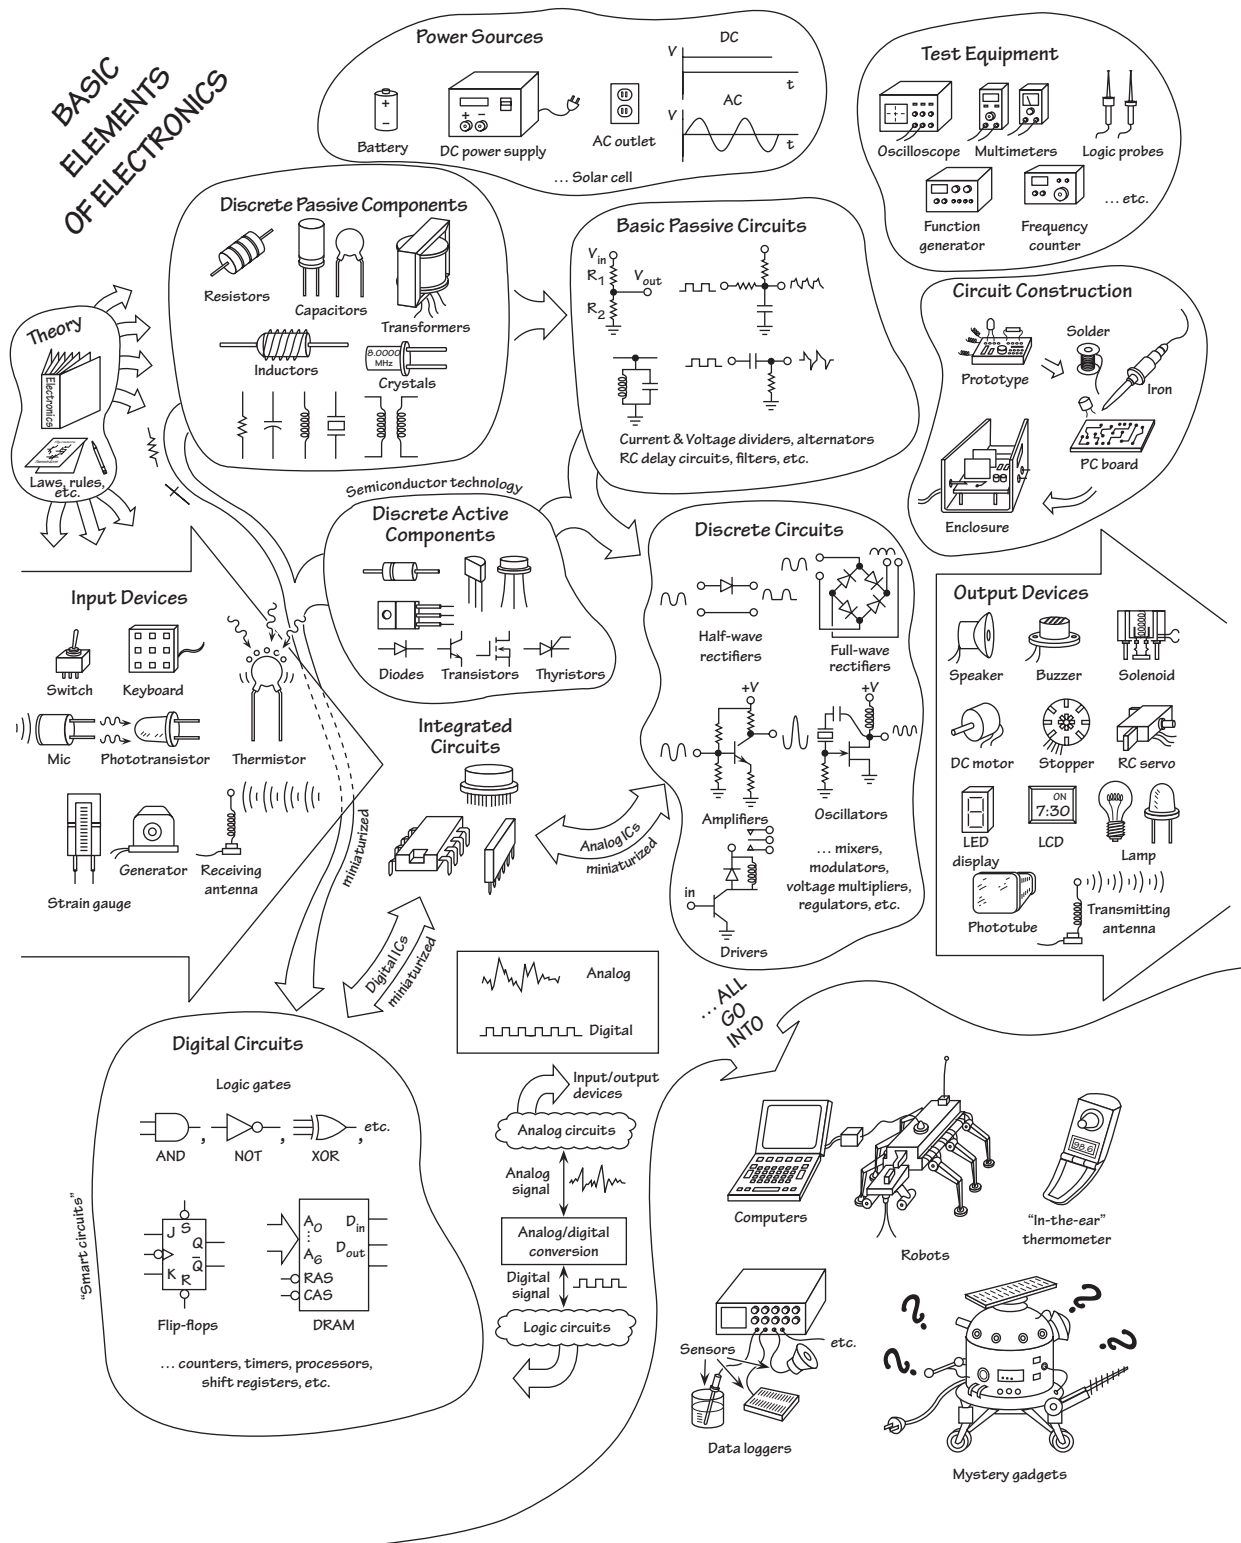 BASIC
ELEMENTS
OF ELECTRONICS
Power Sources
Battery
+
−
DC power supply
+ −
AC outlet
DC
V
t
AC
V
t
... Solar cell
Test Equipment
Oscilloscope
Multimeters
Logic probes
Function
generator
Frequency
counter
... etc.
Discrete Passive Components
Resistors
Capacitors
Transformers
Inductors
8.0000
MHz
Crystals
Basic Passive Circuits
Vin
R1
Vout
R2
Current & Voltage dividers, alternators
RC delay circuits, filters, etc.
Circuit Construction
Prototype
Solder
Iron
PC board
Enclosure
Theory
Electronics
Laws, rules,
etc.
Semiconductor technology
Discrete Active
Components
Diodes
Transistors
Thyristors
Discrete Circuits
Half-wave
rectifiers
Full-wave
rectifiers
+V
+V
Amplifiers
Oscillators
in
Drivers
... mixers,
modulators,
voltage multipliers,
regulators, etc.
Input Devices
Switch
Keyboard
Mic
Phototransistor
Thermistor
Strain gauge
Generator
Receiving
antenna
Integrated
Circuits
miniaturized
Analog ICs
miniaturized
Digital ICs
miniaturized
Output Devices
Speaker
Buzzer
Solenoid
DC motor
Stopper
RC servo
LED
display
ON
7:30
LCD
Lamp
Phototube
Transmitting
antenna
Analog
Digital
... ALL
GO
INTO
Digital Circuits
Logic gates
AND
, NOT
, XOR
, etc.
"Smart circuits"
J S
Q
K R
Q
Flip-flops
A0
...
A6
RAS
CAS
Din
Dout
DRAM
... counters, timers, processors,
shift registers, etc.
Input/output
devices
Analog circuits
Analog
signal
Analog/digital
conversion
Digital
signal
Logic circuits
Computers
Robots
"In-the-ear"
thermometer
Sensors
etc.
Data loggers
? ? ? ?
Mystery gadgets